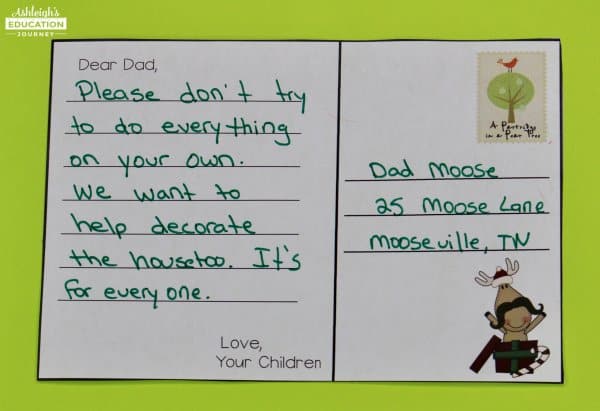 Ashleigh's
EDUCATION
JOURNEY
Dear Dad,
Please don't try
to do everything
on your own.
We want to
help decorate
the housetoo. It's
for everyone.
Love,
Your Children
A Partridge
in a Pear Tree
Dad Moose
25 Moose Lane
Mooseville, TN